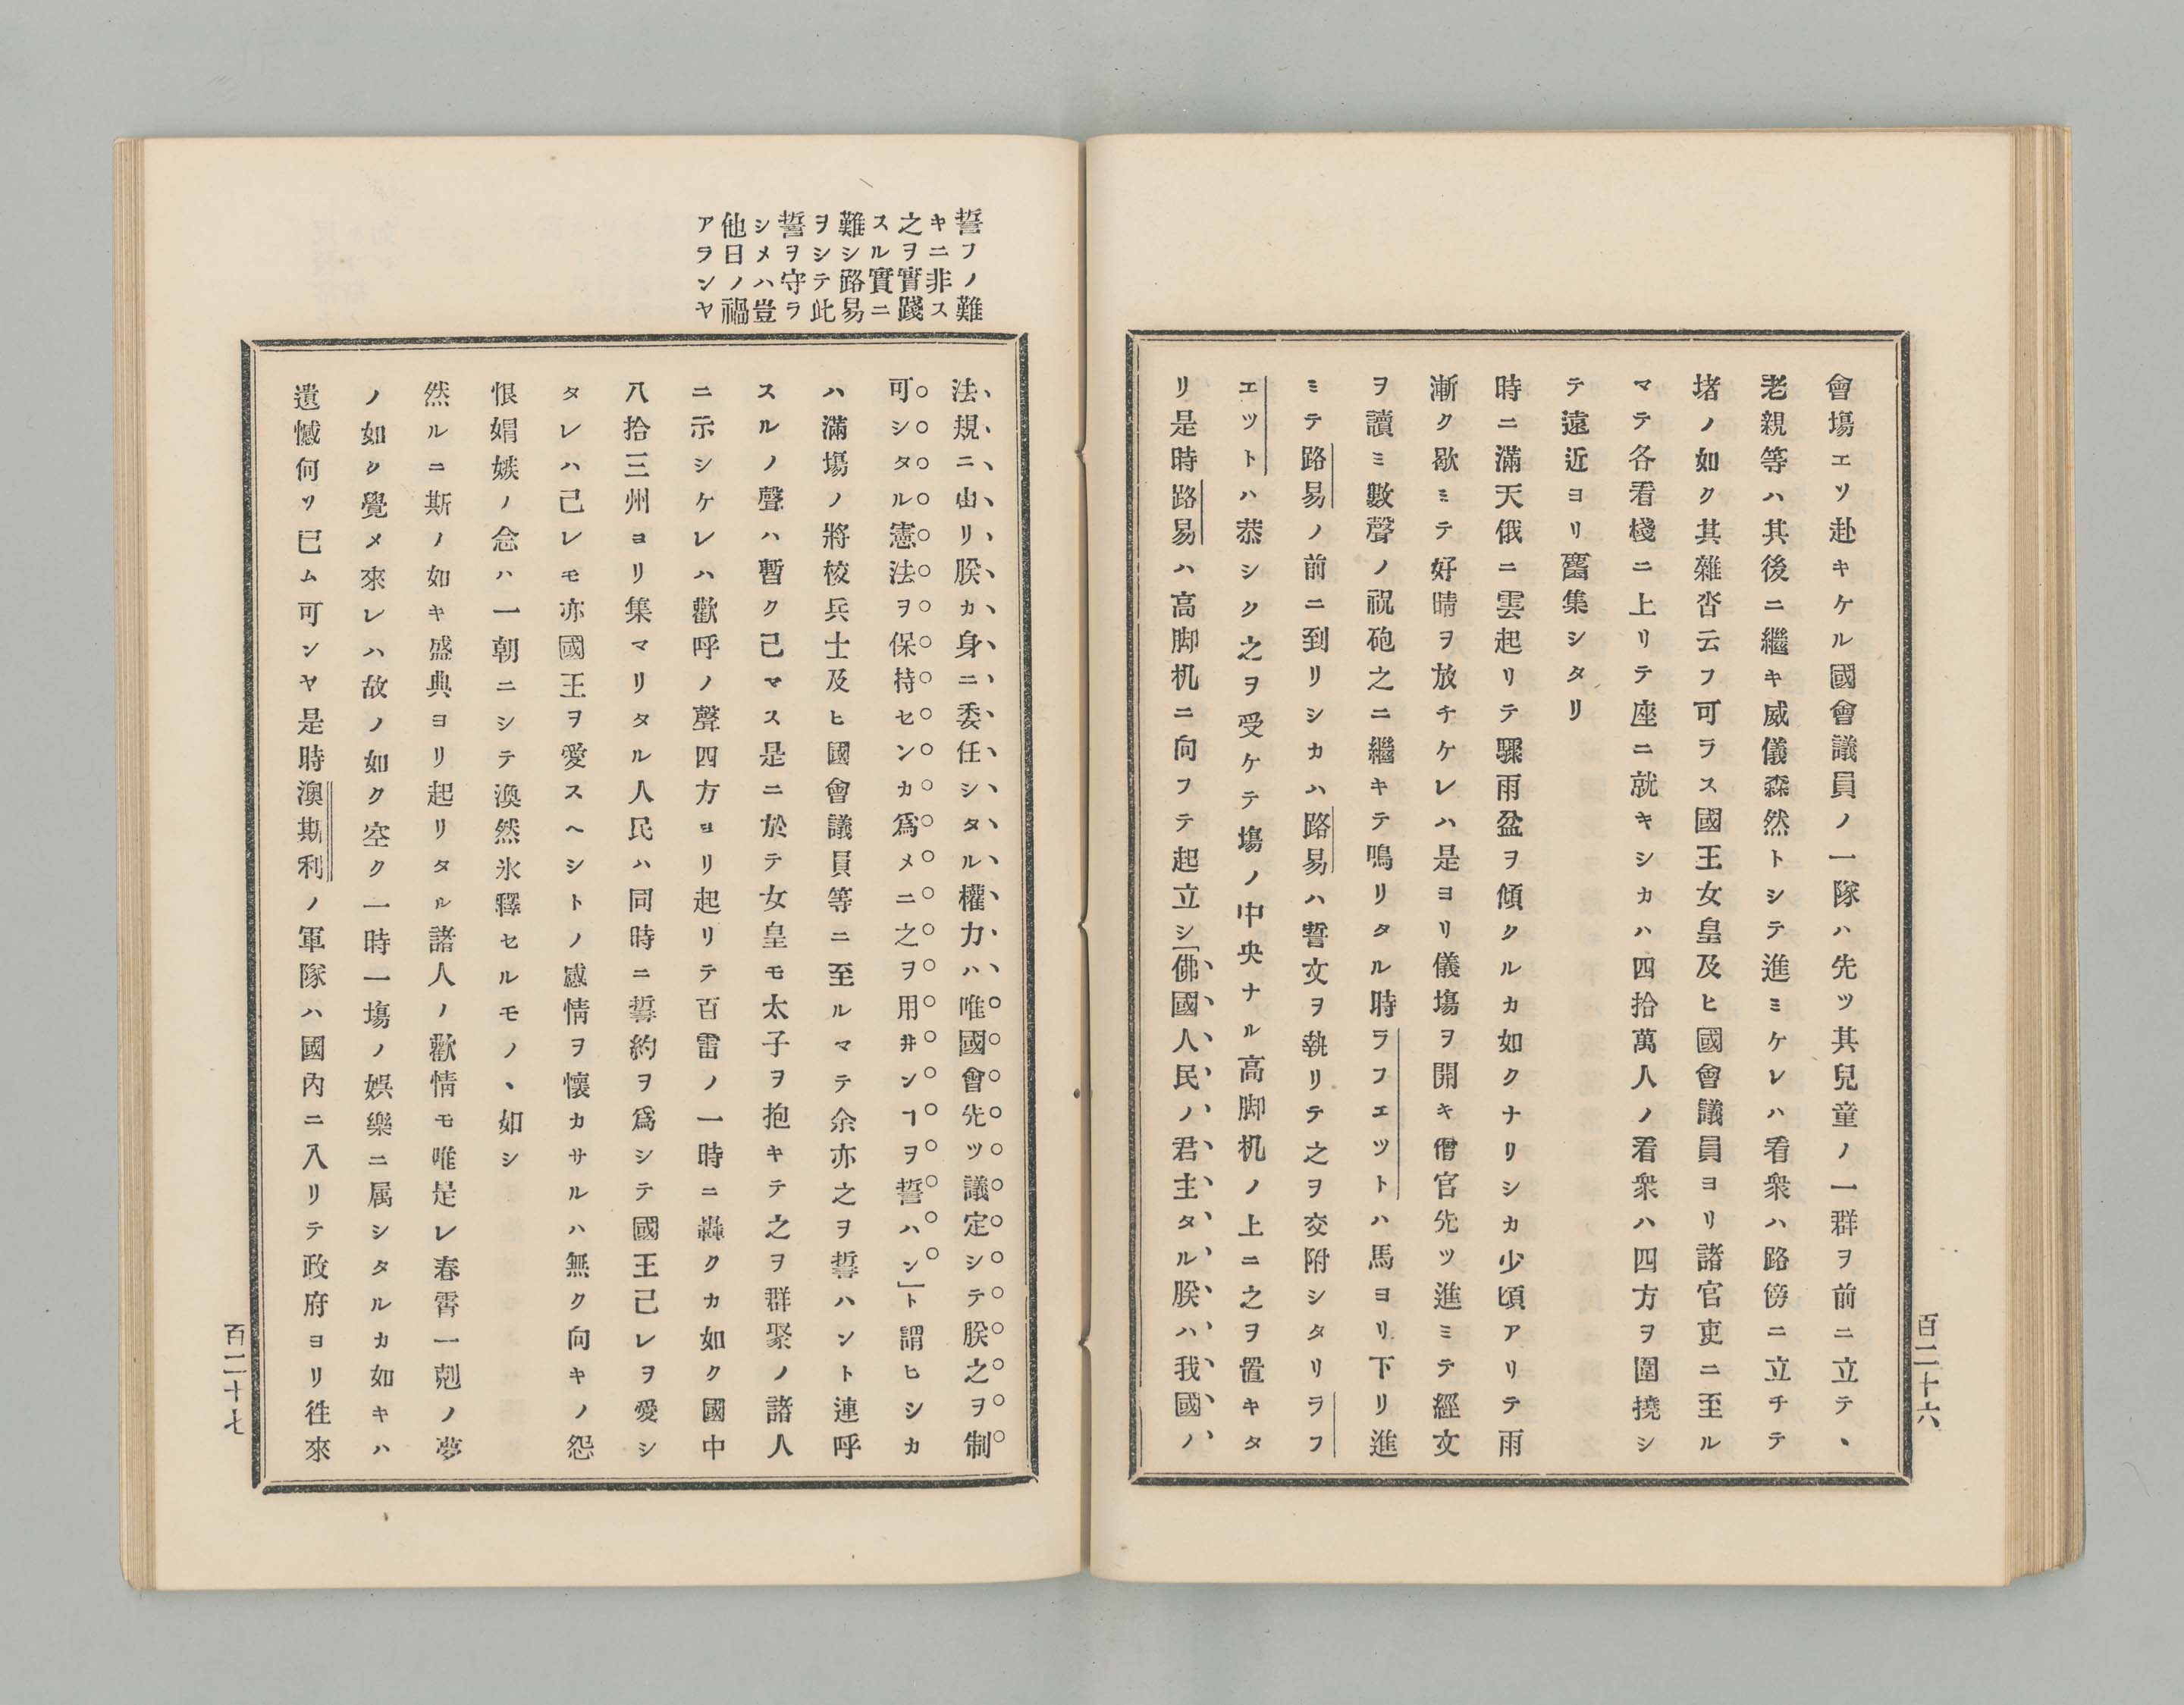 會塲エソ赴キケル國會議員ノ一隊ハ先ツ其兒童ノ一群ヲ前ニ立テヽ
老親等ハ其後ニ繼キ威儀森然トシテ進ミケレハ看衆ハ路傍ニ立チテ
堵ノ如ク其雜沓云フ可ラス國王女皇及ヒ國會議員ヨリ諸官吏ニ至ル
マテ各看棧ニ上リテ座ニ就キシカハ四拾萬人ノ看衆ハ四方ヲ圍撓シ
テ遠近ヨリ蠆集シタリ
時ニ滿天俄ニ雲起リテ驟雨盆ヲ傾クルカ如クナリシカ少頃アリテ雨
漸ク歇ミテ好晴ヲ放チケレハ是ヨリ儀塲ヲ開キ僧官先ツ進ミテ經文
ヲ讀ミ數聲ノ祝砲之ニ繼キテ鳴リタル時ラフエツトハ馬ヨリ下リ進
ミテ路易ノ前ニ到リシカハ路易ハ誓文ヲ執リテ之ヲ交附シタリラフ
エツトハ恭シク之ヲ受ケテ塲ノ中央ナル高脚机ノ上ニ之ヲ置キタ
リ是時路易ハ高脚机ニ向フテ起立シ「佛國人民ノ君主タル朕ハ我國ノ
百二十六
誓フノ難
キニ非ス
之ヲ實踐
スル實ニ
難シ路易
ヲシテ此
誓ヲ守ラ
シメハ豈
他日ノ禍
アランヤ
法規ニ由リ朕カ身ニ委任シタル權力ハ唯國會先ツ議定シテ朕之ヲ制
可シタル憲法ヲ保持センカ爲メニ之ヲ用井ンヿヲ誓ハン」ト謂ヒシカ
ハ滿塲ノ將校兵士及ヒ國會議員等ニ至ルマテ余亦之ヲ誓ハント連呼
スルノ聲ハ暫ク己マス是ニ於テ女皇モ太子ヲ抱キテ之ヲ群聚ノ諸人
ニ示シケレハ歡呼ノ聲四方ヨリ起リテ百雷ノ一時ニ轟クカ如ク國中
八拾三州ヨリ集マリタル人民ハ同時ニ誓約ヲ爲シテ國王己レヲ愛シ
タレハ己レモ亦國王ヲ愛スヘシトノ感情ヲ懷カサルハ無ク向キノ怨
恨娟嫉ノ念ハ一朝ニシテ渙然氷釋セルモノヽ如シ
然ルニ斯ノ如キ盛典ヨリ起リタル諸人ノ歡情モ唯是レ春霄一剋ノ夢
ノ如ク覺メ來レハ故ノ如ク空ク一時一塲ノ娯樂ニ属シタルカ如キハ
遺憾何ソ已ム可ンヤ是時澳斯利ノ軍隊ハ國內ニ入リテ政府ヨリ徃來
百二十七